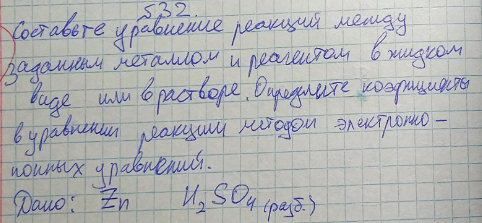 532
Составьте уравнение реакций между
заданным металлом и реагентом в жидком
виде или в растворе. Определите коэфициэнты
в уравнении реакции методом электронно-
ионных уравнений.
Дано: Zn H₂SO₄ (разб.)